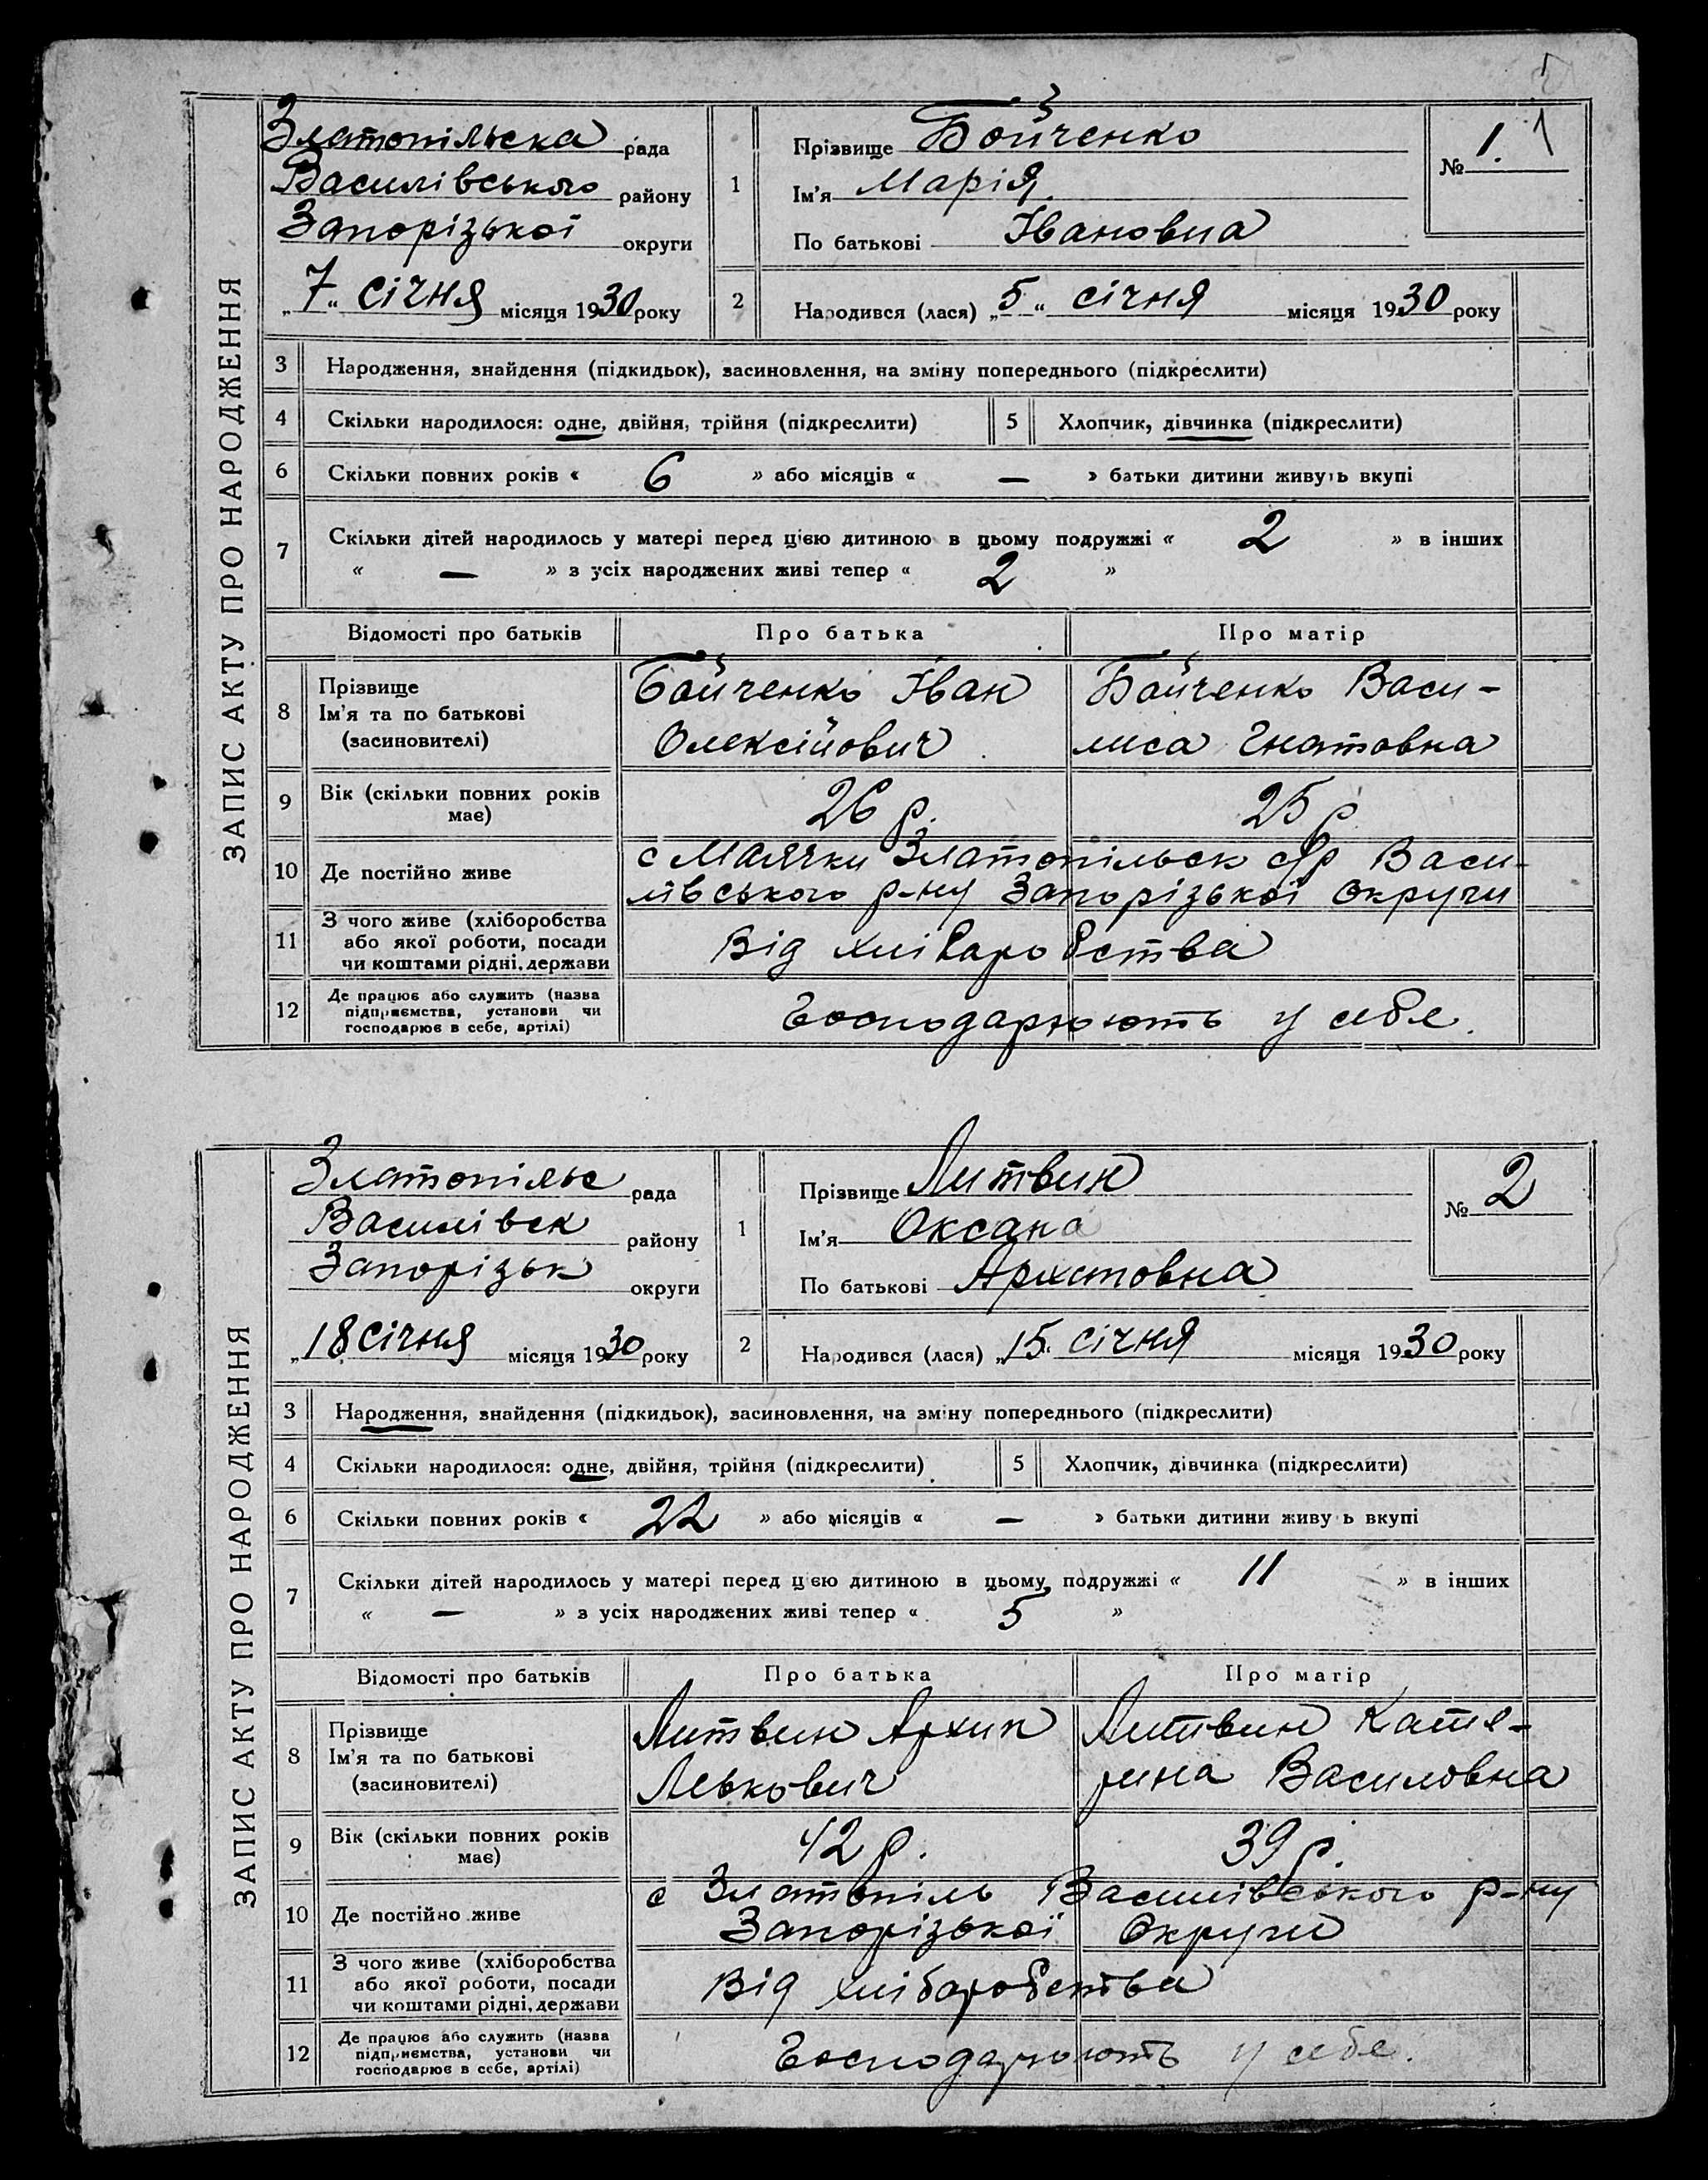 1
ЗАПИС АКТУ ПРО НАРОДЖЕННЯ
Златопільска рада
Василівського району
Запорізької округи
„7“ січня місяця 1930 року
1 Прізвище Бойченко
Ім'я Марія
По батькові Івановна
№ 1. 1
2 Народився (лася) „5“ січня місяця 1930 року
3 Народження, знайдення (підкидьок), засиновлення, на зміну попереднього (підкреслити)
4 Скільки народилося: одне, двійня, трійня (підкреслити) 5 Хлопчик, дівчинка (підкреслити)
6 Скільки повних років « 6 » або місяців « — » батьки дитини живуть вкупі
7 Скільки дітей народилось у матері перед цією дитиною в цьому подружжі « 2 » в інших
« — » з усіх народжених живі тепер « 2 »
Відомості про батьків Про батька Про матір
8 Прізвище
Ім'я та по батькові
(засиновителі)
Бойченко Іван
Олексійович
Бойченко Васи-
лиса Гнатовна
9 Вік (скільки повних років
має)
26 р. 25 р
10 Де постійно живе
с Маячки Златопільск с/р Васи-
лівського р-ну Запорізької Округи
11 З чого живе (хліборобства
або якої роботи, посади
чи коштами рідні, держави
Від хліборобства
12 Де працює або служить (назва
підприємства, установи чи
господарює в себе, артілі)
Господарюють у себе.
ЗАПИС АКТУ ПРО НАРОДЖЕННЯ
Златопільс рада
Василівск району
Запорізьк округи
„18 січня місяця 1930 року
1 Прізвище Литвин
Ім'я Оксана
По батькові Архиповна
№ 2
2 Народився (лася) „15“ січня місяця 1930 року
3 Народження, знайдення (підкидьок), засиновлення, на зміну попереднього (підкреслити)
4 Скільки народилося: одне, двійня, трійня (підкреслити) 5 Хлопчик, дівчинка (підкреслити)
6 Скільки повних років « 22 » або місяців « — » батьки дитини живуть вкупі
7 Скільки дітей народилось у матері перед цією дитиною в цьому подружжі « 11 » в інших
« — » з усіх народжених живі тепер « 5 »
Відомості про батьків Про батька Про матір
8 Прізвище
Ім'я та по батькові
(засиновителі)
Литвин Архип
Лькович
Литвин Кате-
рина Василовна
9 Вік (скільки повних років
має)
42 р. 39 р.
10 Де постійно живе
с Златопіль Василівського р-ну
Запорізької Округи
11 З чого живе (хліборобства
або якої роботи, посади
чи коштами рідні, держави
Від хліборобства
12 Де працює або служить (назва
підприємства, установи чи
господарює в себе, артілі)
Господарюють у себе.